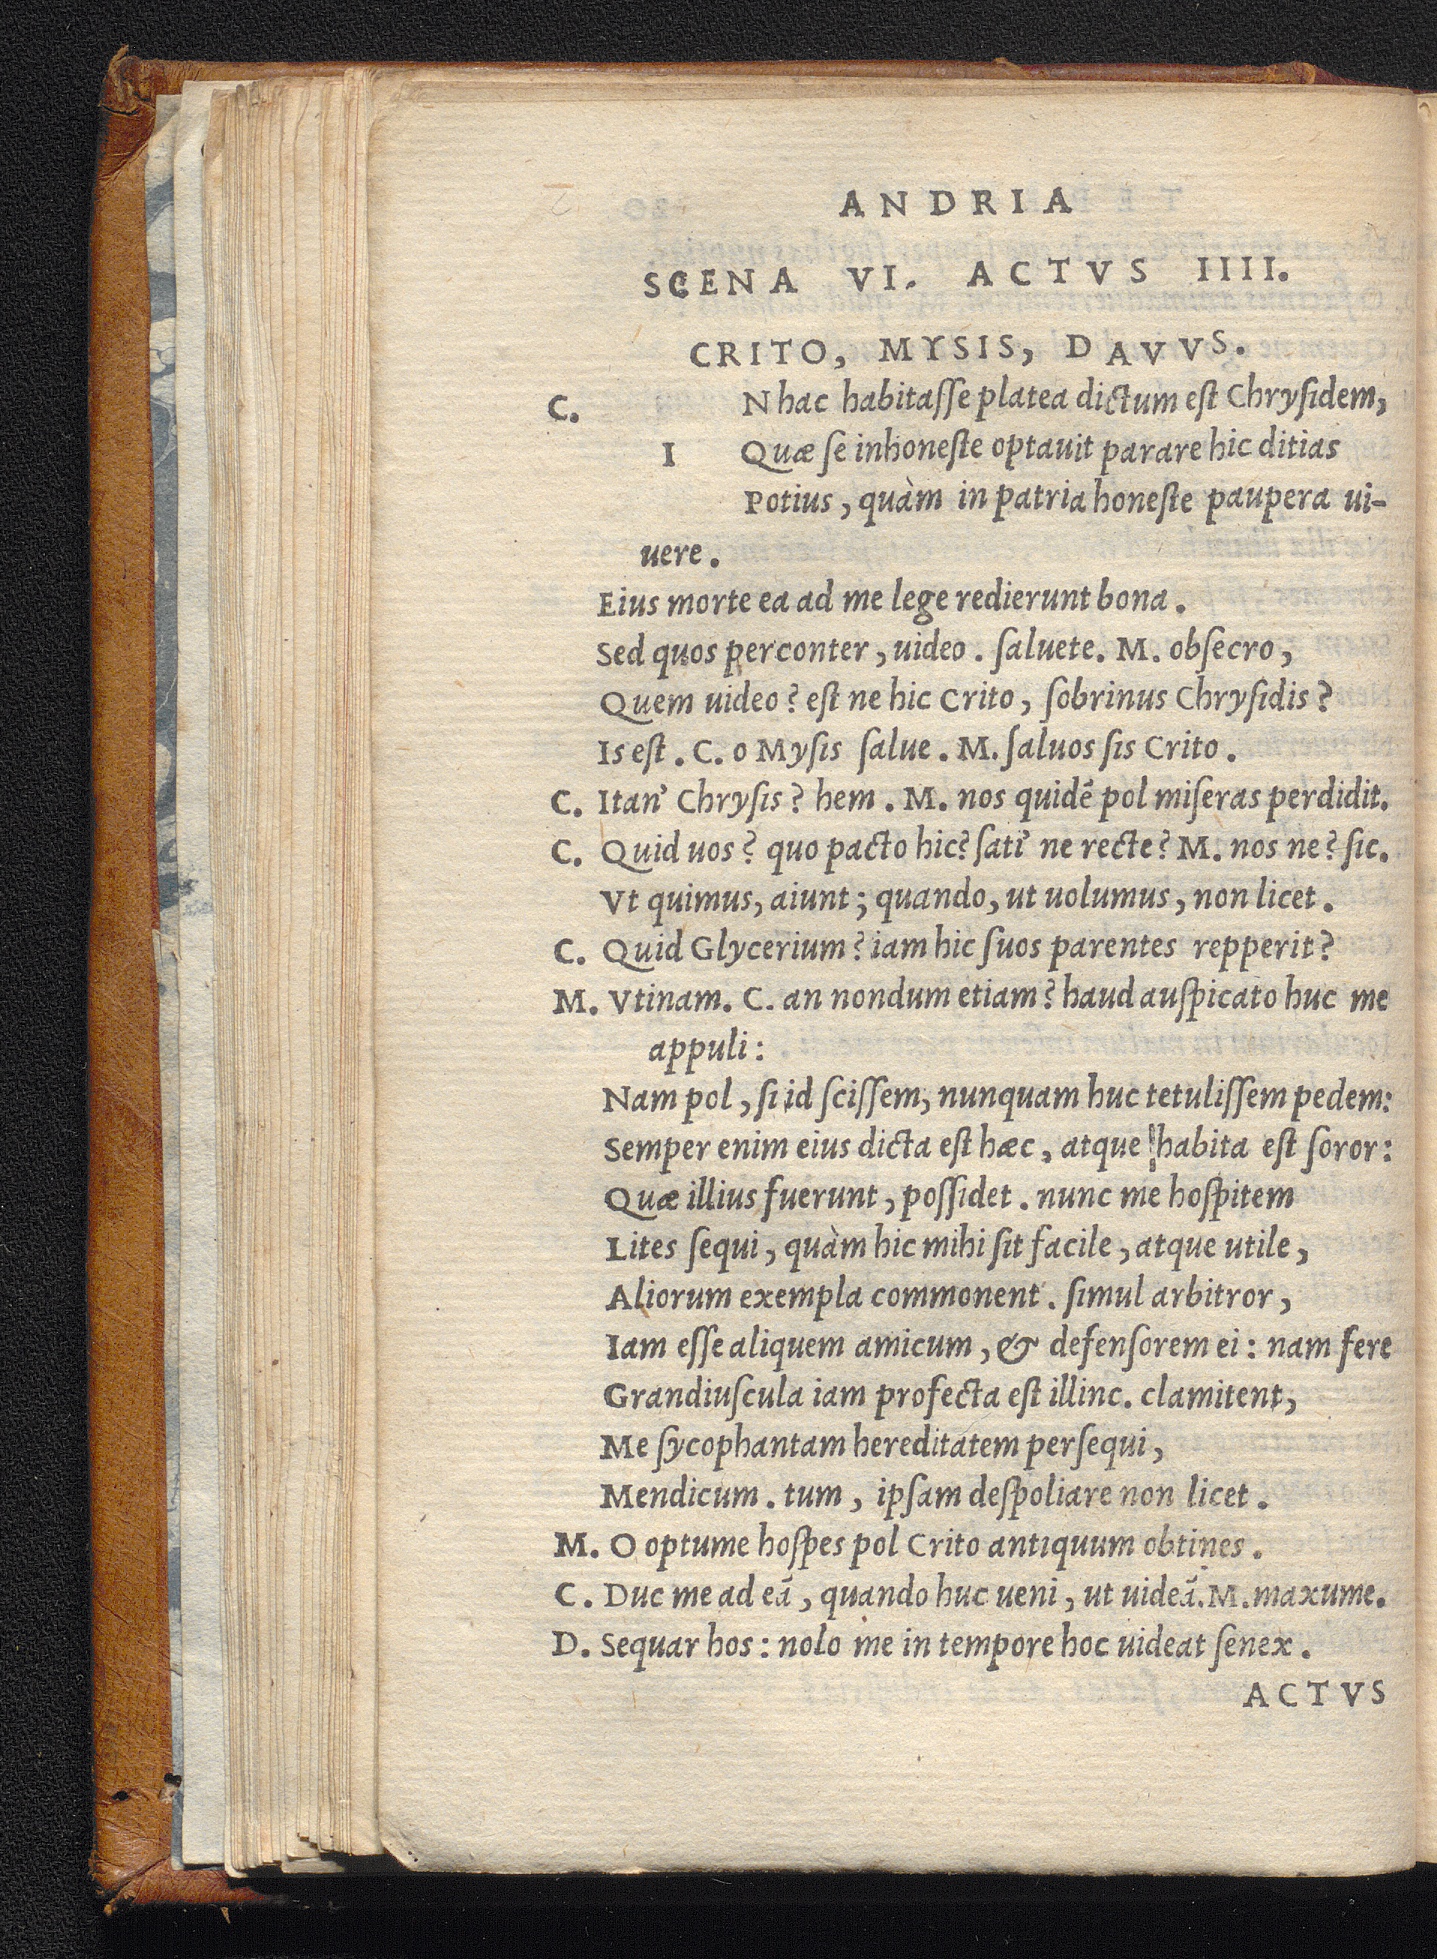 ANDRIA
SCENA VI. ACTVS IIII.
CRITO, MYSIS, DAVVS.
C. N hac habitaſſe platea dictum eſt Chryſidem,
I Quæ ſe inhoneſte optauit parare hic ditias
Potius, quàm in patria honeſte paupera ui-
uere.
Eius morte ea ad me lege redierunt bona.
Sed quos perconter, uideo. ſaluete. M. obſecro,
Quem uideo? eſt ne hic Crito, ſobrinus Chryſidis?
Is eſt. C. o Myſis ſalue. M. ſaluos ſis Crito.
C. Itan' Chryſis? hem. M. nos quidē pol miſeras perdidit.
C. Quid uos? quo pacto hic? ſati' ne recte? M. nos ne? ſic.
Vt quimus, aiunt; quando, ut uolumus, non licet.
C. Quid Glycerium? iam hic ſuos parentes repperit?
M. Vtinam. C. an nondum etiam? haud auſpicato huc me
appuli:
Nam pol, ſi id ſciſſem, nunquam huc tetuliſſem pedem:
Semper enim eius dicta eſt hæc, atque habita eſt ſoror:
Quæ illius fuerunt, poſſidet. nunc me hoſpitem
Lites ſequi, quàm hic mihi ſit facile, atque utile,
Aliorum exempla commonent. ſimul arbitror,
Iam eſſe aliquem amicum, & defenſorem ei: nam fere
Grandiuſcula iam profecta eſt illinc. clamitent,
Me ſycophantam hereditatem perſequi,
Mendicum. tum, ipſam deſpoliare non licet.
M. O optume hoſpes pol Crito antiquum obtines.
C. Duc me ad eā, quando huc ueni, ut uideā. M. maxume.
D. Sequar hos: nolo me in tempore hoc uideat ſenex.
ACTVS